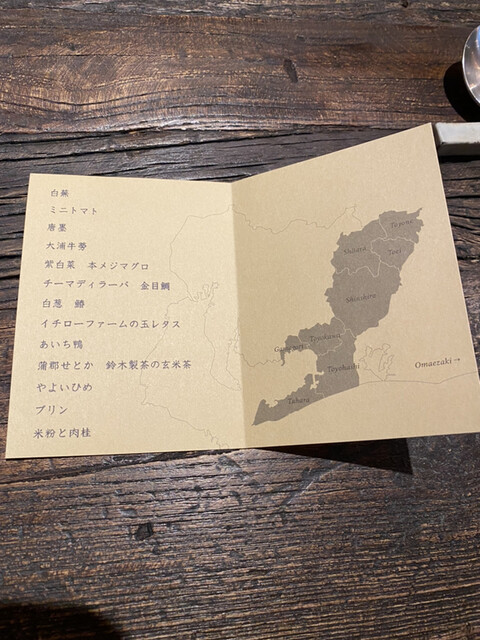 白蕪
ミニトマト
唐墨
大浦牛蒡
紫白菜　本メジマグロ
チーマディラーパ　金目鯛
白葱　鰆
イチローファームの玉レタス
あいち鴨
蒲郡せとか　鈴木製茶の玄米茶
やよいひめ
プリン
米粉と肉桂
Toyone
Shitara
Toei
Shinshiro
Gamagori
Toyokawa
Toyohashi
Tahara
Omaezaki→